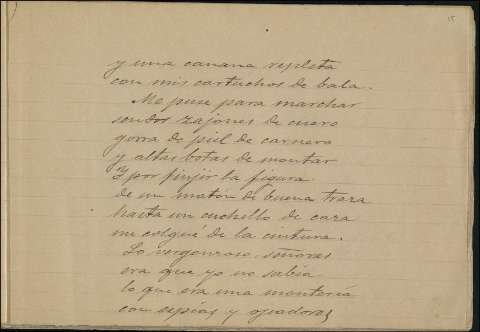 15
y una canana repleta
con mis cartuchos de bala.
Me puse para marchar
sendos zajones de cuero
gorra de piel de carnero
y altas botas de montar
Y por finjir la figura
de un matón de buena traza
hasta un cuchillo de caza
me colgué de la cintura.
Lo vergonzoso, señores
era que yo no sabia
lo que era una montería
con espías y ojeadores